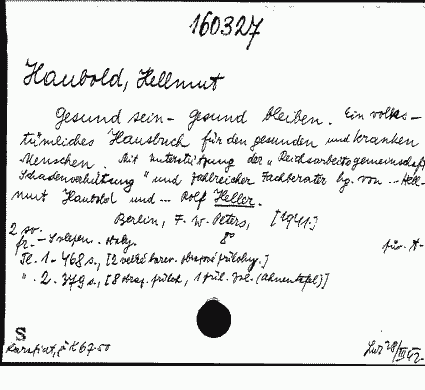 160327
Haubold, Hellmut
Gesund sein - gesund bleiben. Ein volks-
tümliches Hausbuch für den gesunden und kranken
Menschen. Mit Unterstützung der „Reichsarbeitsgemeinschaft
Schadenverhütung" und zahlreicher Fachberater hg. von ... Hell-
mut Haubold und ... Rolf Heller.
Berlin, F. W. Peters, [1941.]
2 sv.
fr. - 8°
Tl. 1. - 468 s., [2 barev. přílohy.]
" 2. 379 s., [8 příloh, 1 (Ahnentafel)]
S
K 67-50